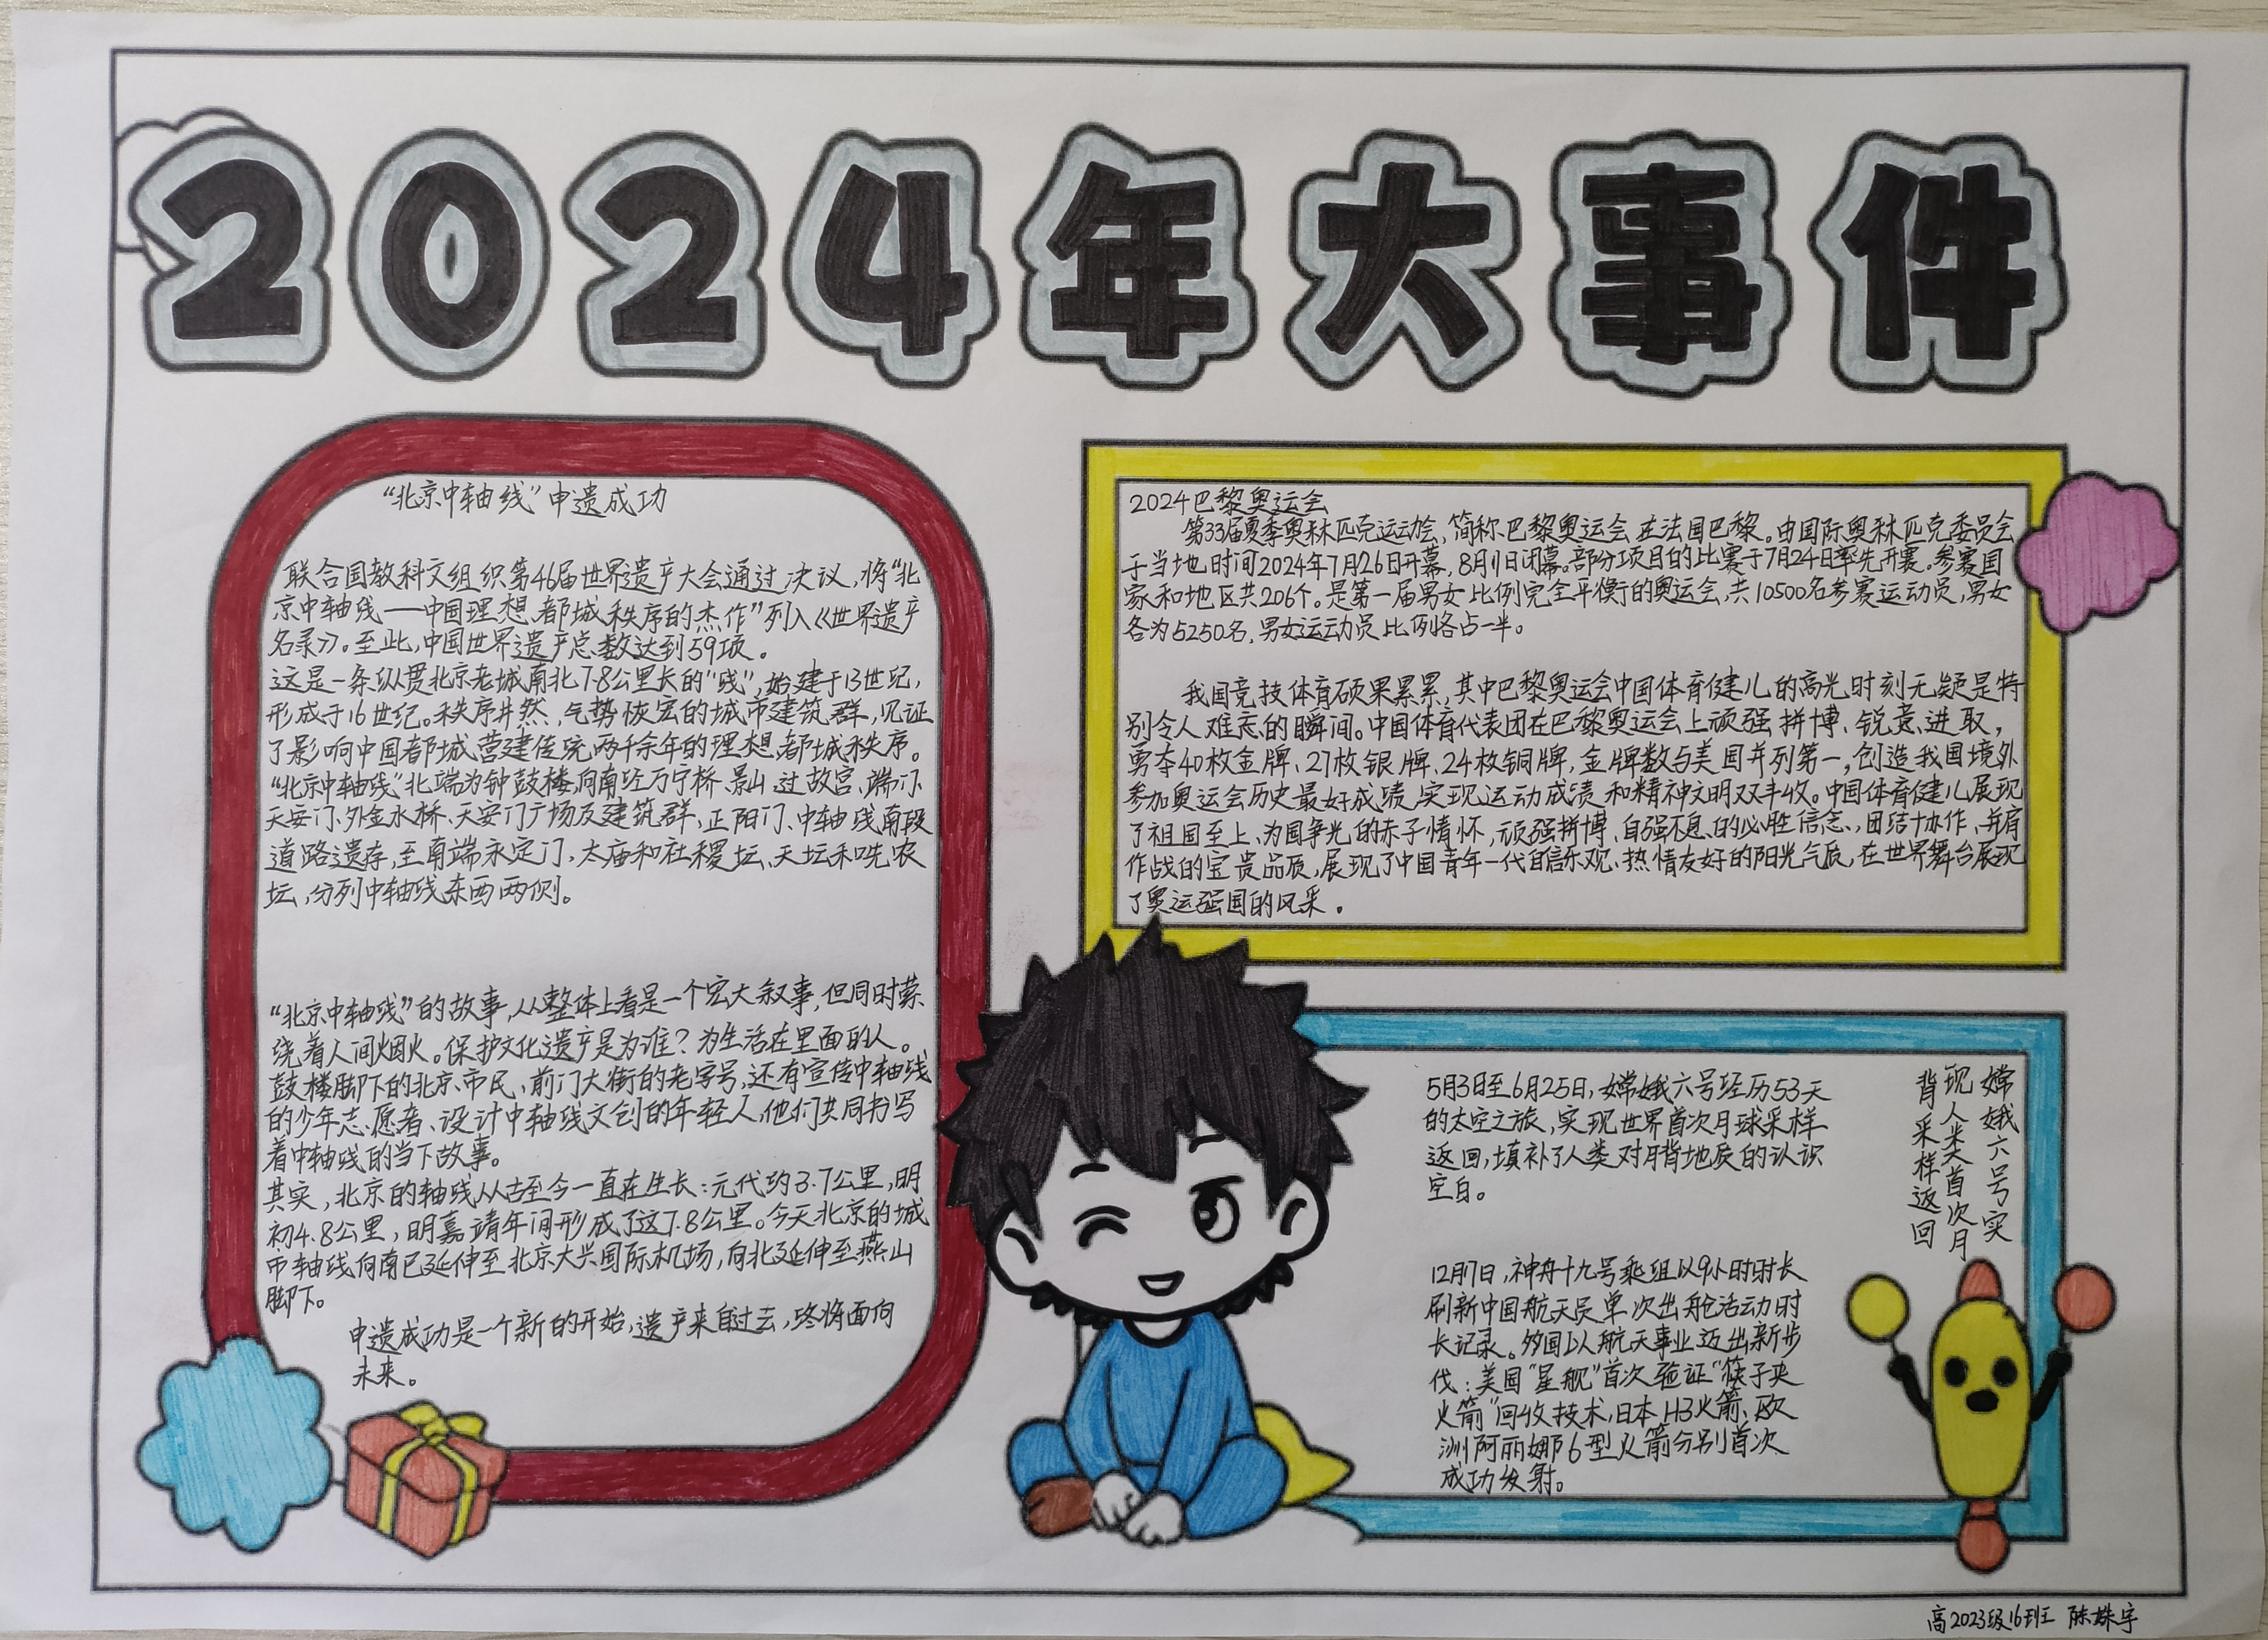 2024年大事件
“北京中轴线”申遗成功
联合国教科文组织第46届世界遗产大会通过决议，将“北
京中轴线——中国理想都城秩序的杰作”列入《世界遗产
名录》。至此，中国世界遗产总数达到59项。
这是一条纵贯北京老城南北7.8公里长的“线”，始建于13世纪，
形成于16世纪。秩序井然、气势恢宏的城市建筑群，见证
了影响中国都城营建传统两千余年的理想都城秩序。
“北京中轴线”北端为钟鼓楼，向南经万宁桥、景山，过故宫、端门、
天安门、外金水桥、天安门广场及建筑群、正阳门、中轴线南段
道路遗存，至南端永定门，太庙和社稷坛、天坛和先农
坛，分列中轴线东西两侧。
“北京中轴线”的故事，从整体上看是一个宏大叙事，但同时萦
绕着人间烟火。保护文化遗产是为谁？为生活在里面的人。
鼓楼脚下的北京市民、前门大街的老字号，还有宣传中轴线
的少年志愿者、设计中轴线文创的年轻人，他们共同书写
着中轴线的当下故事。
其实，北京的轴线从古至今一直在生长：元代约3.7公里，明
初4.8公里，明嘉靖年间形成了这7.8公里。今天北京的城
市轴线向南已延伸至北京大兴国际机场，向北延伸至燕山
脚下。
申遗成功是一个新的开始，遗产来自过去，终将面向
未来。
2024巴黎奥运会
第33届夏季奥林匹克运动会，简称巴黎奥运会，在法国巴黎。由国际奥林匹克委员会
于当地时间2024年7月26日开幕，8月11日闭幕。部份项目的比赛于7月24日率先开赛。参赛国
家和地区共206个。是第一届男女比例完全平衡的奥运会，共10500名参赛运动员，男女
各为5250名，男女运动员比例各占一半。
我国竞技体育硕果累累，其中巴黎奥运会中国体育健儿的高光时刻无疑是特
别令人难忘的瞬间。中国体育代表团在巴黎奥运会上顽强拼搏、锐意进取，
勇夺40枚金牌、27枚银牌、24枚铜牌，金牌数与美国并列第一，创造我国境外
参加奥运会历史最好成绩，实现运动成绩和精神文明双丰收。中国体育健儿展现
了祖国至上、为国争光的赤子情怀，顽强拼搏、自强不息的必胜信念，团结协作、并肩
作战的宝贵品质，展现了中国青年一代自信乐观、热情友好的阳光气质，在世界舞台展现
了奥运强国的风采。
嫦娥六号实
现人类首次月
背采样返回
5月3日至6月25日，嫦娥六号经历53天
的太空之旅，实现世界首次月球采样
返回，填补了人类对月背地质的认识
空白。
12月17日，神舟十九号乘组以9小时时长
刷新中国航天员单次出舱活动时
长记录。多国以航天事业迈出新步
伐：美国“星舰”首次验证“筷子夹
火箭”回收技术，日本H3火箭、欧
洲阿丽娜6型火箭分别首次
成功发射。
高2023级16班 陈姝宇